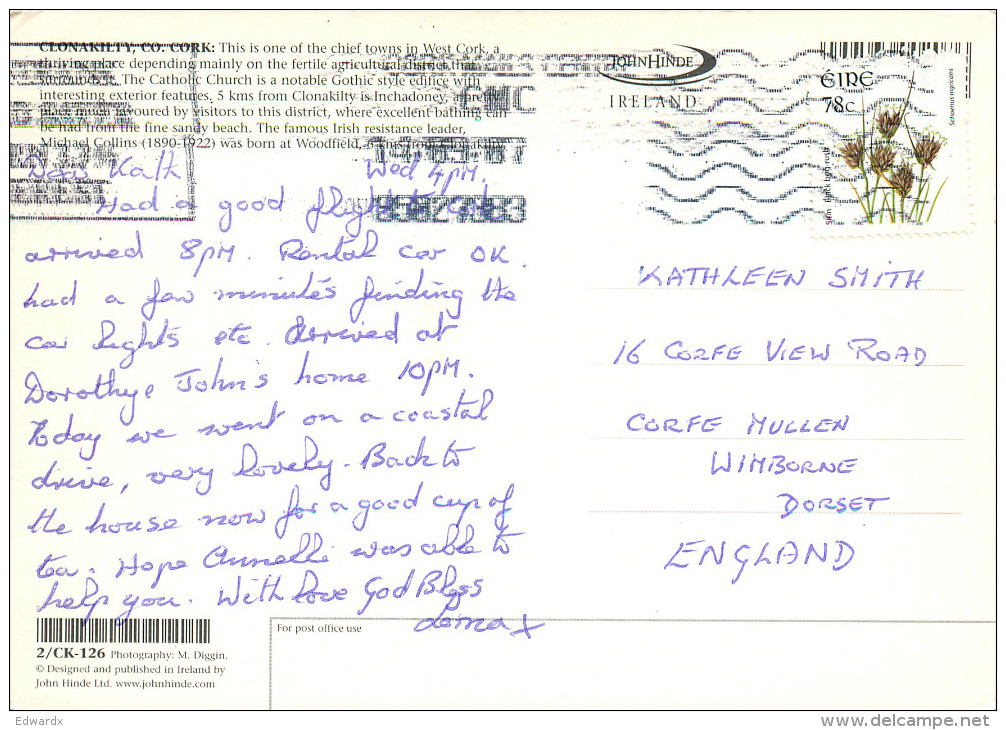 CLONAKILTY, CO. CORK: This is one of the chief towns in West Cork, a
thriving place depending mainly on the fertile agricultural district that
surrounds it. The Catholic Church is a notable Gothic style edifice with
interesting exterior features, 5 kms from Clonakilty is Inchadoney, a pretty
place much favoured by visitors to this district, where excellent bathing can
be had from the fine sandy beach. The famous Irish resistance leader,
Michael Collins (1890-1922) was born at Woodfield, 6 kms from Clonakilty.
JOHN HINDE
IRELAND
ÉIRE
78c
Schoenus nigricans
Dear Kath Wed 4PM.
Had a good flight to Cork
arrived 8PM. Rental car OK.
had a few minutes finding the
car lights etc. Arrived at
Dorothy & John's home 10PM.
Today we went on a coastal
drive, very lovely. Back to
the house now for a good cup of
tea. Hope was able to
help you. With love God Bless
x
KATHLEEN SMITH
16 CORFE VIEW ROAD
CORFE MULLEN
WIMBORNE
DORSET
ENGLAND
For post office use
2/CK-126 Photography: M. Diggin.
© Designed and published in Ireland by
John Hinde Ltd. www.johnhinde.com
Edwardx
delcampe.net